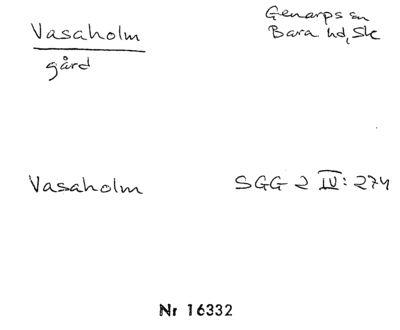 Vasaholm
gård
Genarps sn
Bara hd, Sk
Vasaholm
SGG 2 IV: 274
Nr 16332